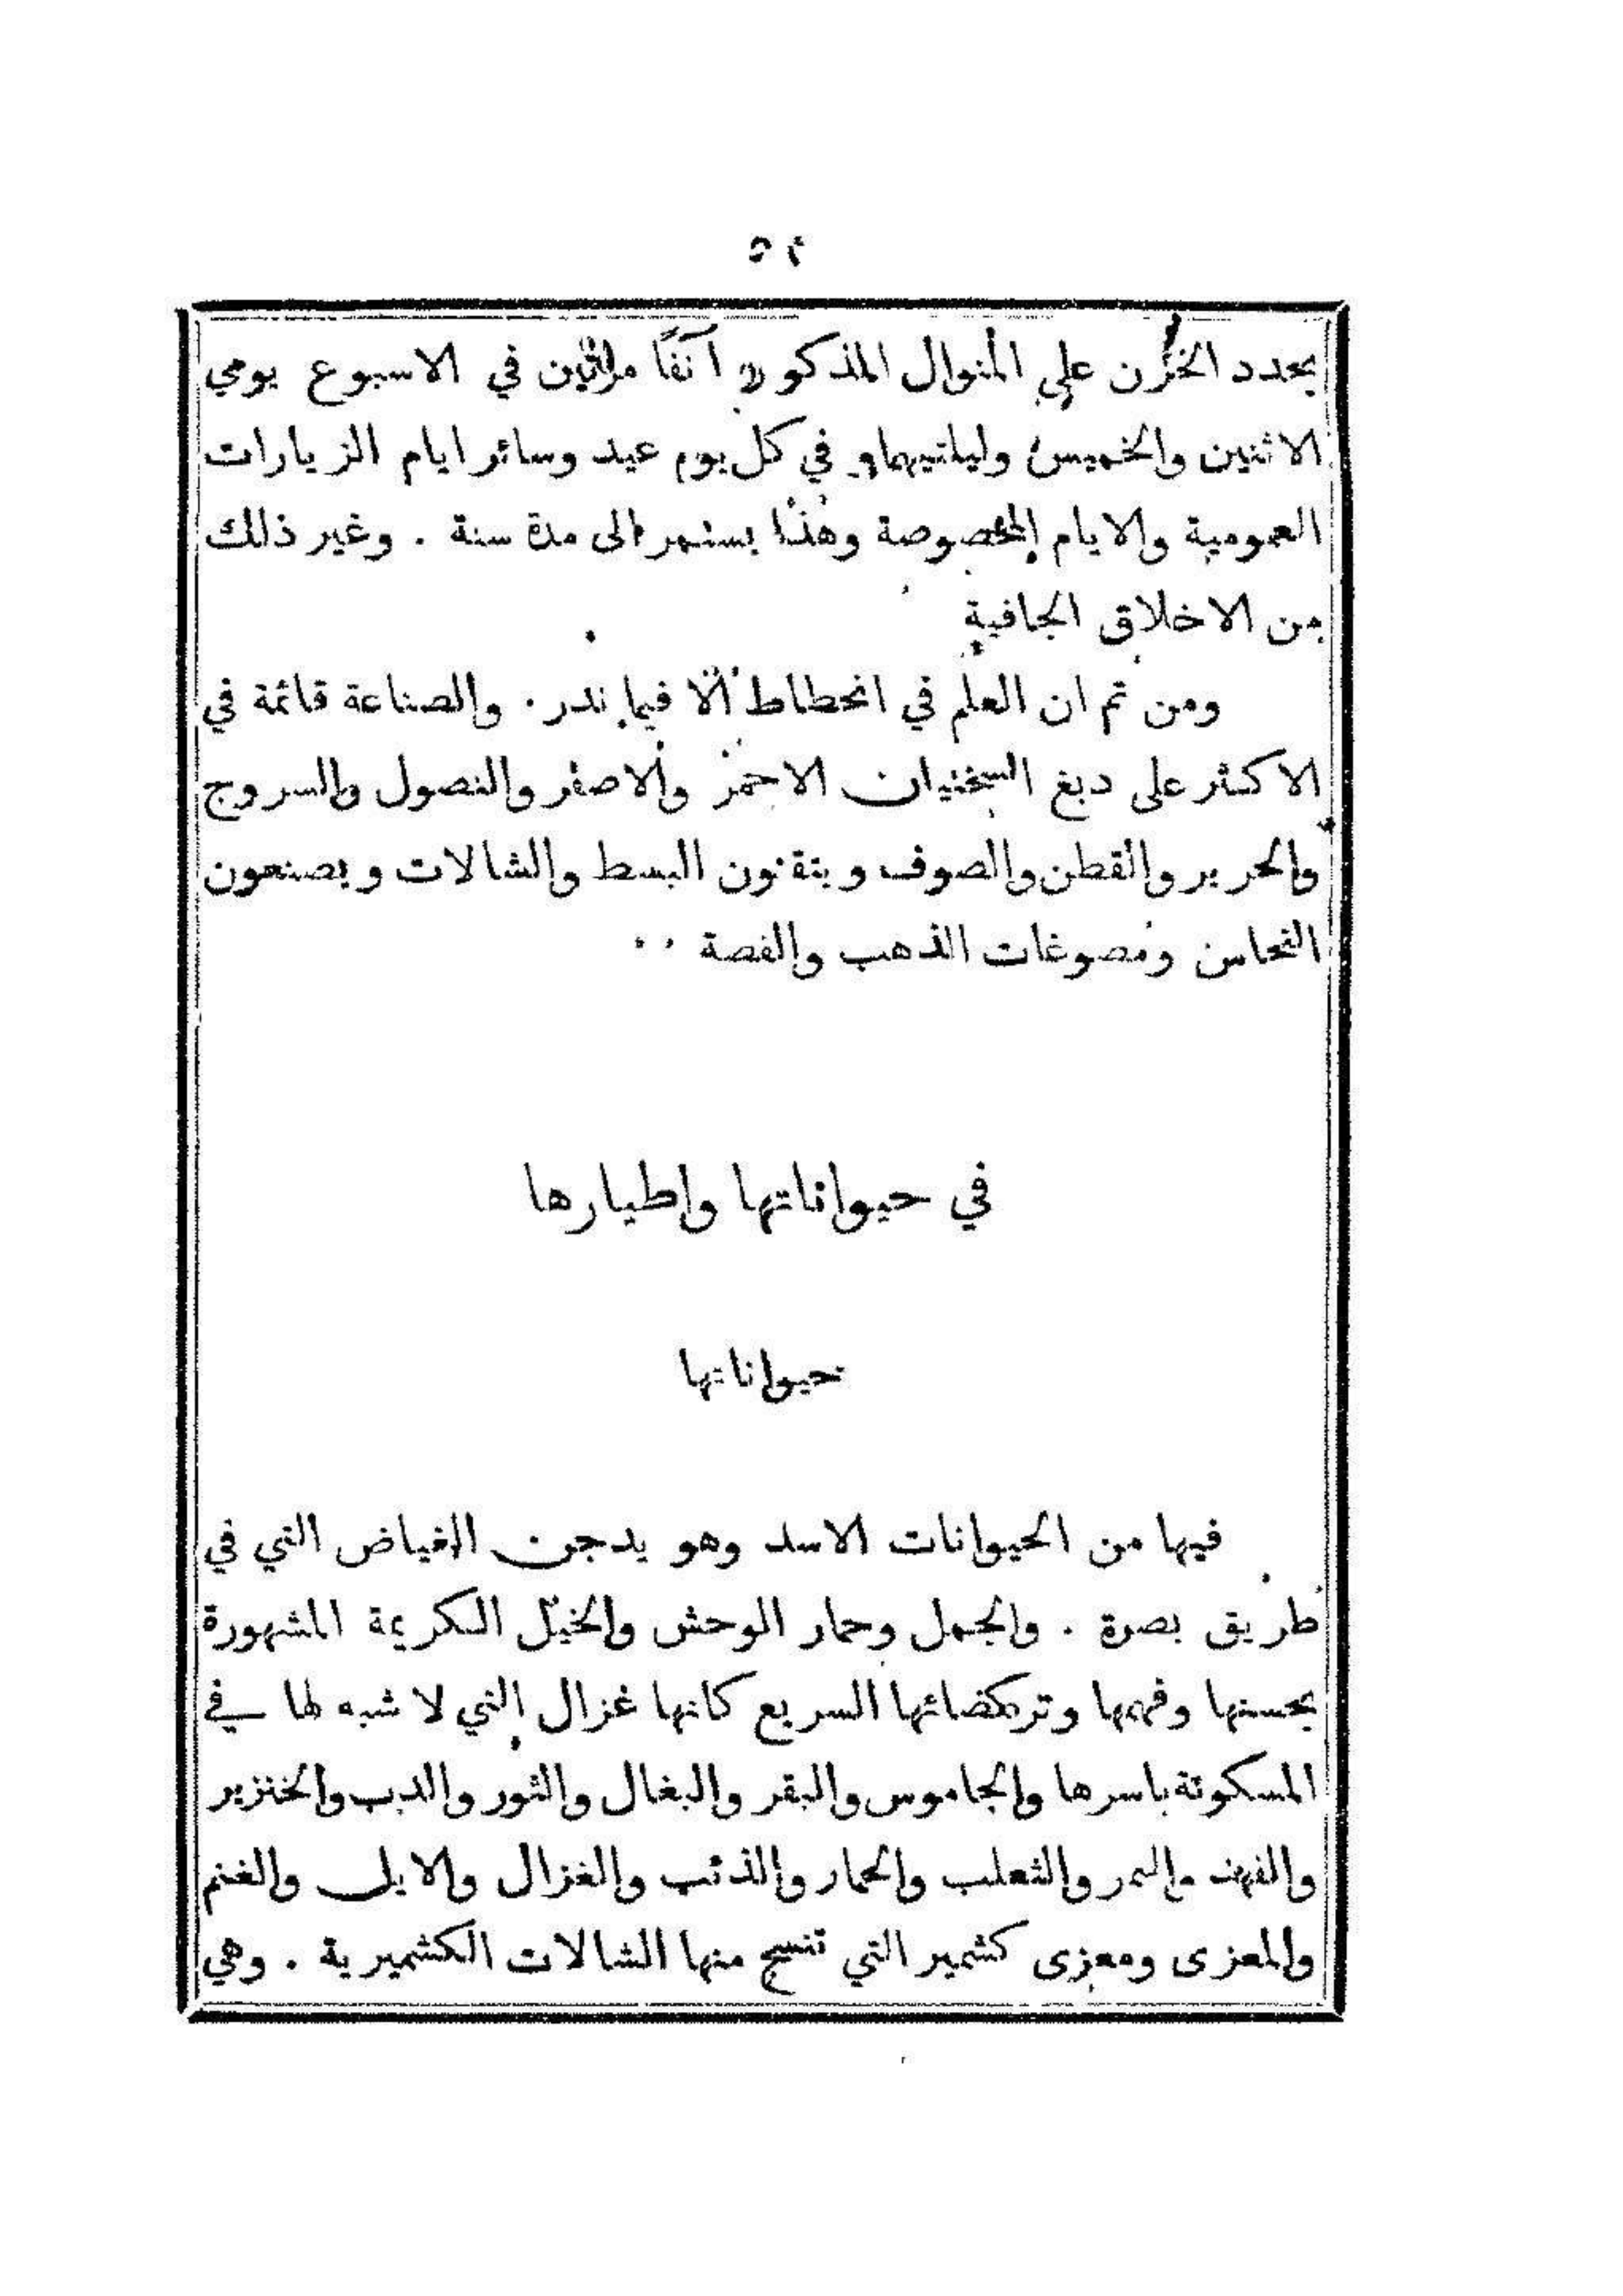 ٥٢
يجدد الحزن على المنوال المذكور آنفًا مراتين في الاسبوع يومي
الاثنين والخميس وليلتيهما وفي كل يوم عيد وسائر ايام الزيارات
العمومية والايام المخصوصة وهذا يستمر الى مدة سنة . وغير ذلك
من الاخلاق الجافية
ومن ثم ان العلم في انحطاط الا فيما ندر . والصناعة قائمة في
الاكثر على دبغ السختيان الاحمر والاصفر والنصول والسروج
والحرير والقطن والصوف ويتقنون البسط والشالات ويصنعون
النحاس ومصوغات الذهب والفضة . .
في حيواناتها واطيارها
حيواناتها
فيها من الحيوانات الاسد وهو يدجن الغياض التي في
طريق بصرة . والجمل وحمار الوحش والخيل الكريمة المشهورة
بحسنها وفهمها وتركضائها السريع كانها غزال التي لا شبه لها في
المسكونة باسرها والجاموس والبقر والبغال والثور والدب والخنزير
والفهد والنمر والثعلب والحمار والذئب والغزال والايل والغنم
والمعزى ومعزى كشمير التي تنسج منها الشالات الكشميرية . وهي